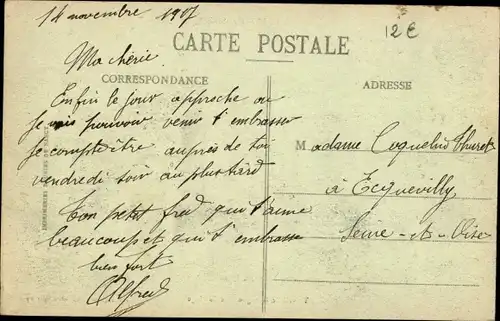 14 novembre 1907
12€
CARTE POSTALE
Ma chérie
CORRESPONDANCE
ADRESSE
Enfin le jour approche ou
je vais pouvoir venir t'embrasser
je compte être auprès de toi
vendredi soir au plus tard
Ton petit fred qui t'aime
beaucoup et qui t'embrasse
bien fort
Alfred
Madame Coquelin
à Ecquevilly
Seine-et-Oise